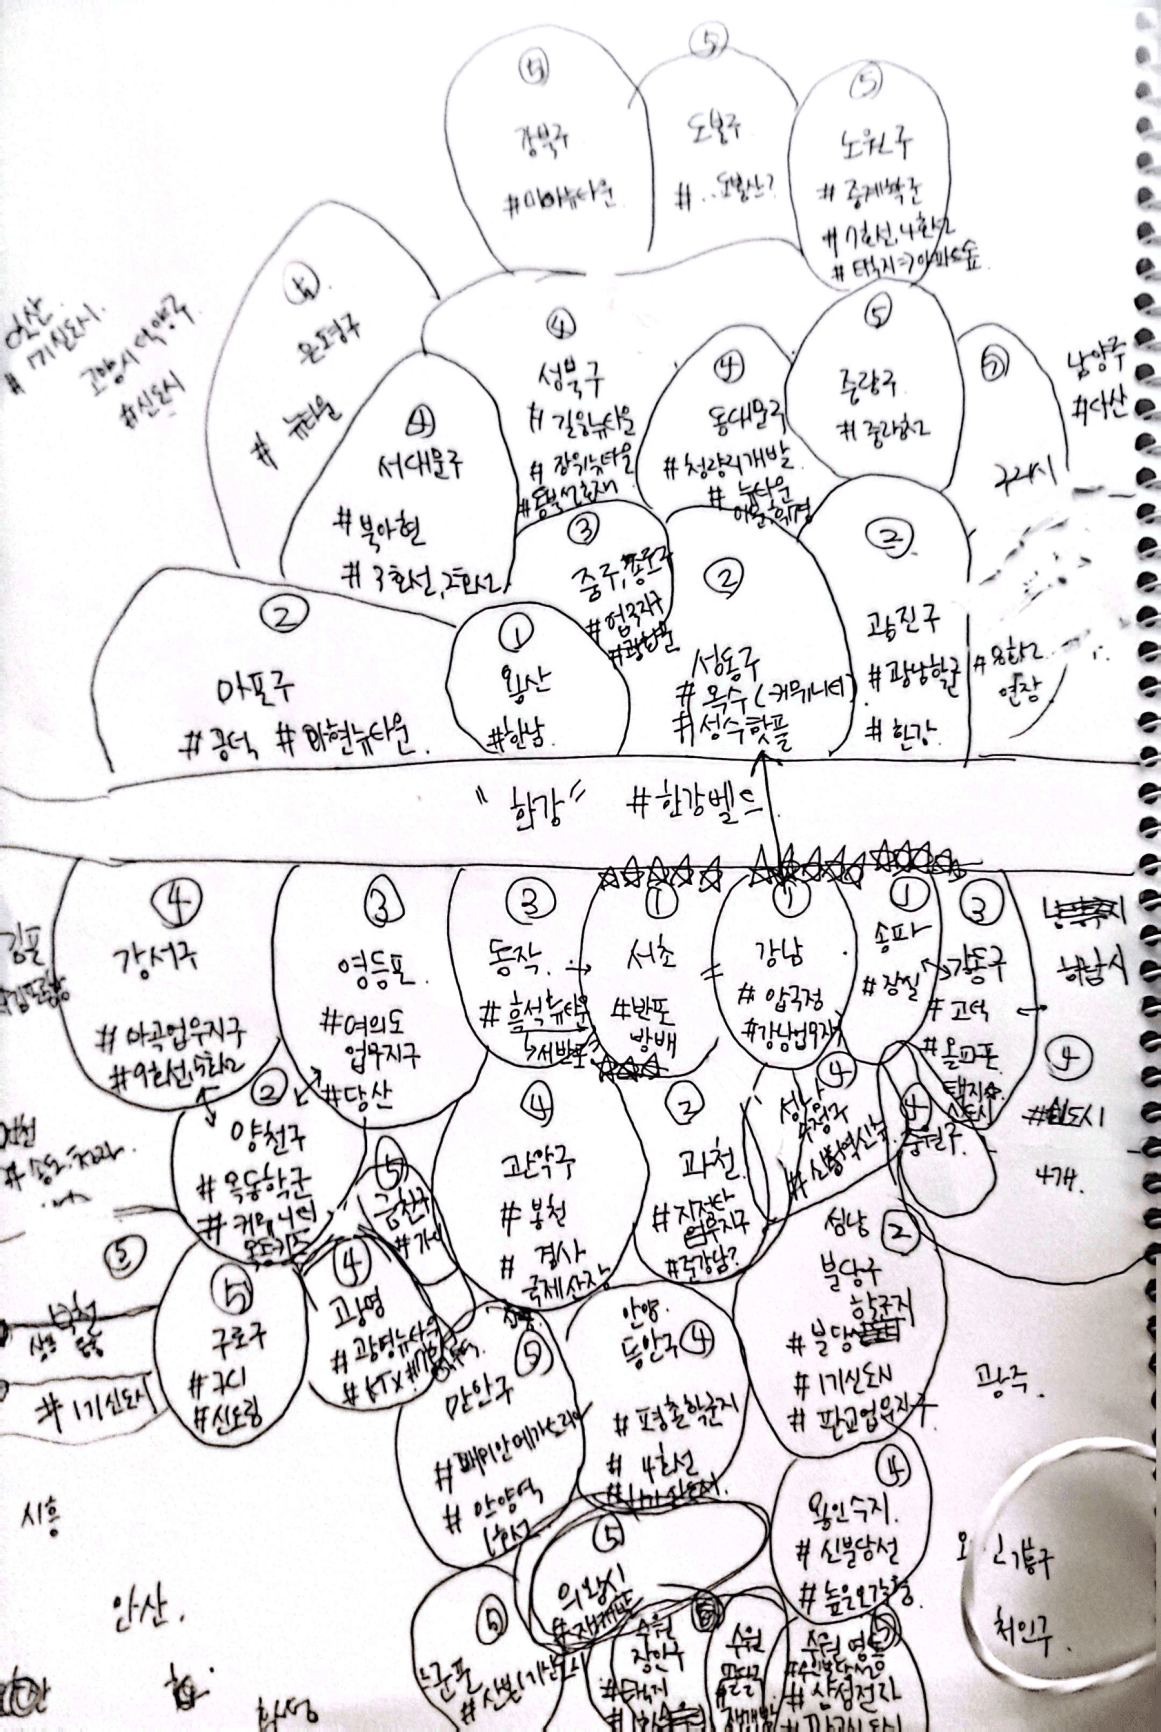 ⑤
강북구
#미아뉴타운
⑤
도봉구
# ..도봉산?
⑤
노원구
# 중계학군
# 7호선, 4호선
# 택지=>아파트숲
일산
# 1기신도시.
고양시 덕양구
#신도시
⑤
은평구
# 뉴타운
④
서대문구
#북아현
# 3호선, 2호선
④
성북구
# 길음뉴타운
# 장위뉴타운
#동북선호재
④
동대문구
#청량리개발
# 뉴타운
이문,휘경
⑤
중랑구
#중랑천
⑤
구리시
남양주
#다산
②
마포구
#공덕 #아현뉴타운
①
용산
#한남
③
중구, 종로구
#업무지구
#광화문
②
성동구
#옥수(커뮤니티)
#성수핫플
②
광진구
#광남학군
#한강
#8학군
연장
"한강" #한강벨트
④
강서구
#마곡업무지구
#9호선,5호선
③
영등포
#여의도
업무지구
#당산
③
동작
#흑석뉴타운
↳서반포?
①
서초
#반포
방배
①
강남
#압구정
#강남업무지구
①
송파
#잠실
③
강동구
#고덕
#올파포
택지
신도시
하남시
④
#신도시
4개.
김포
②
양천구
#목동학군
#커뮤니티
목동키즈
⑤
금천구
#가디
④
관악구
#봉천
# 경사
국제산장
②
과천
#지정타
업무지구
#준강남?
④
성남
수정구
#신흥역신축
④
중원구
②
성남
분당구
학군지
#분당
#1기신도시
#판교업무지구
광주.
⑤
⑤
구로구
#구디
#신도림
④
광명
#광명뉴타운
#KTX
#1기신도시
⑤
만안구
#래미안메가트리아
#안양역
1호선
안양
동안구 ④
#평촌학군지
# 4호선
#1기신도시.
④
용인수지.
#신분당선
#높은오르막
기흥구
처인구.
시흥
안산.
⑤
의왕시
#재개발
⑤
군포
#산본(1기신도시)
수원
장안구
#택지
수원
팔달구
#재개발
⑤
수원 영통
#신분당선
#삼성전자
#광교신도시
화성